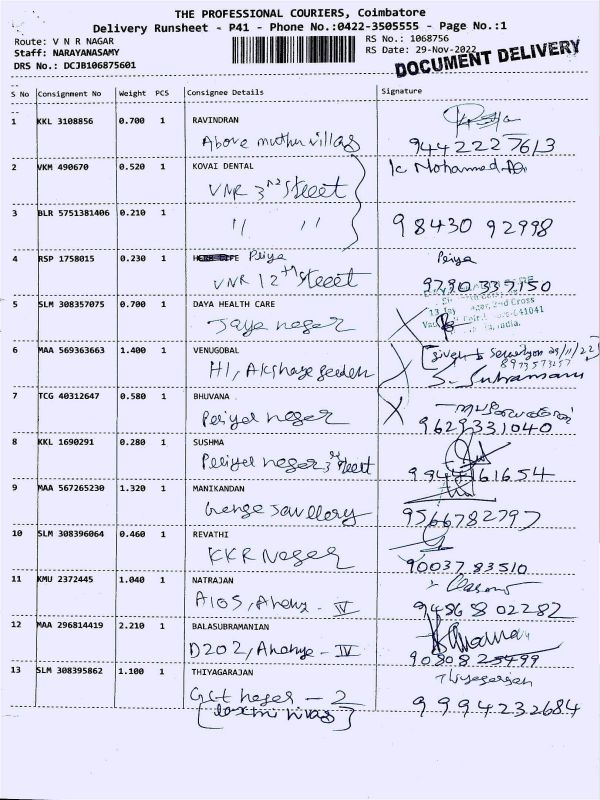 THE PROFESSIONAL COURIERS, Coimbatore
Delivery Runsheet - P41 - Phone No.:0422-3505555 - Page No.:1
Route: V N R NAGAR
RS No.: 1068756
Staff: NARAYANASAMY
RS Date: 29-Nov-2022
DRS No.: DCJB106875601
DOCUMENT DELIVERY
S No Consignment No Weight PCS Consignee Details Signature
1 KKL 3108856 0.700 1 RAVINDRAN
Above muthu villas 9442227613
2 VKM 490670 0.520 1 KOVAI DENTAL
VNR 3rd Street
3 BLR 5751381406 0.210 1
" " 98430 92998
4 RSP 1758015 0.230 1 Priya Priya
VNR 12th Street 9790337150
5 SLM 308357075 0.700 1 DAYA HEALTH CARE
Jaya nagar
6 MAA 569363663 1.400 1 VENUGOBAL
H1, 8973573257
7 TCG 40312647 0.580 1 BHUVANA
Periyar nagar 9629331040
8 KKL 1690291 0.280 1 SUSHMA
Periyar nagar 3rd Street
9 MAA 567265230 1.320 1 MANIKANDAN
9566782797
10 SLM 308396064 0.460 1 REVATHI
KKR Nagar 9003783510
11 KMU 2372445 1.040 1 NATRAJAN
A105, - V 9486802282
12 MAA 296814419 2.210 1 BALASUBRAMANIAN
D202, - IV
13 SLM 308395862 1.100 1 THIYAGARAJAN
nagar - 2
[laxmi nivas] 9994232684